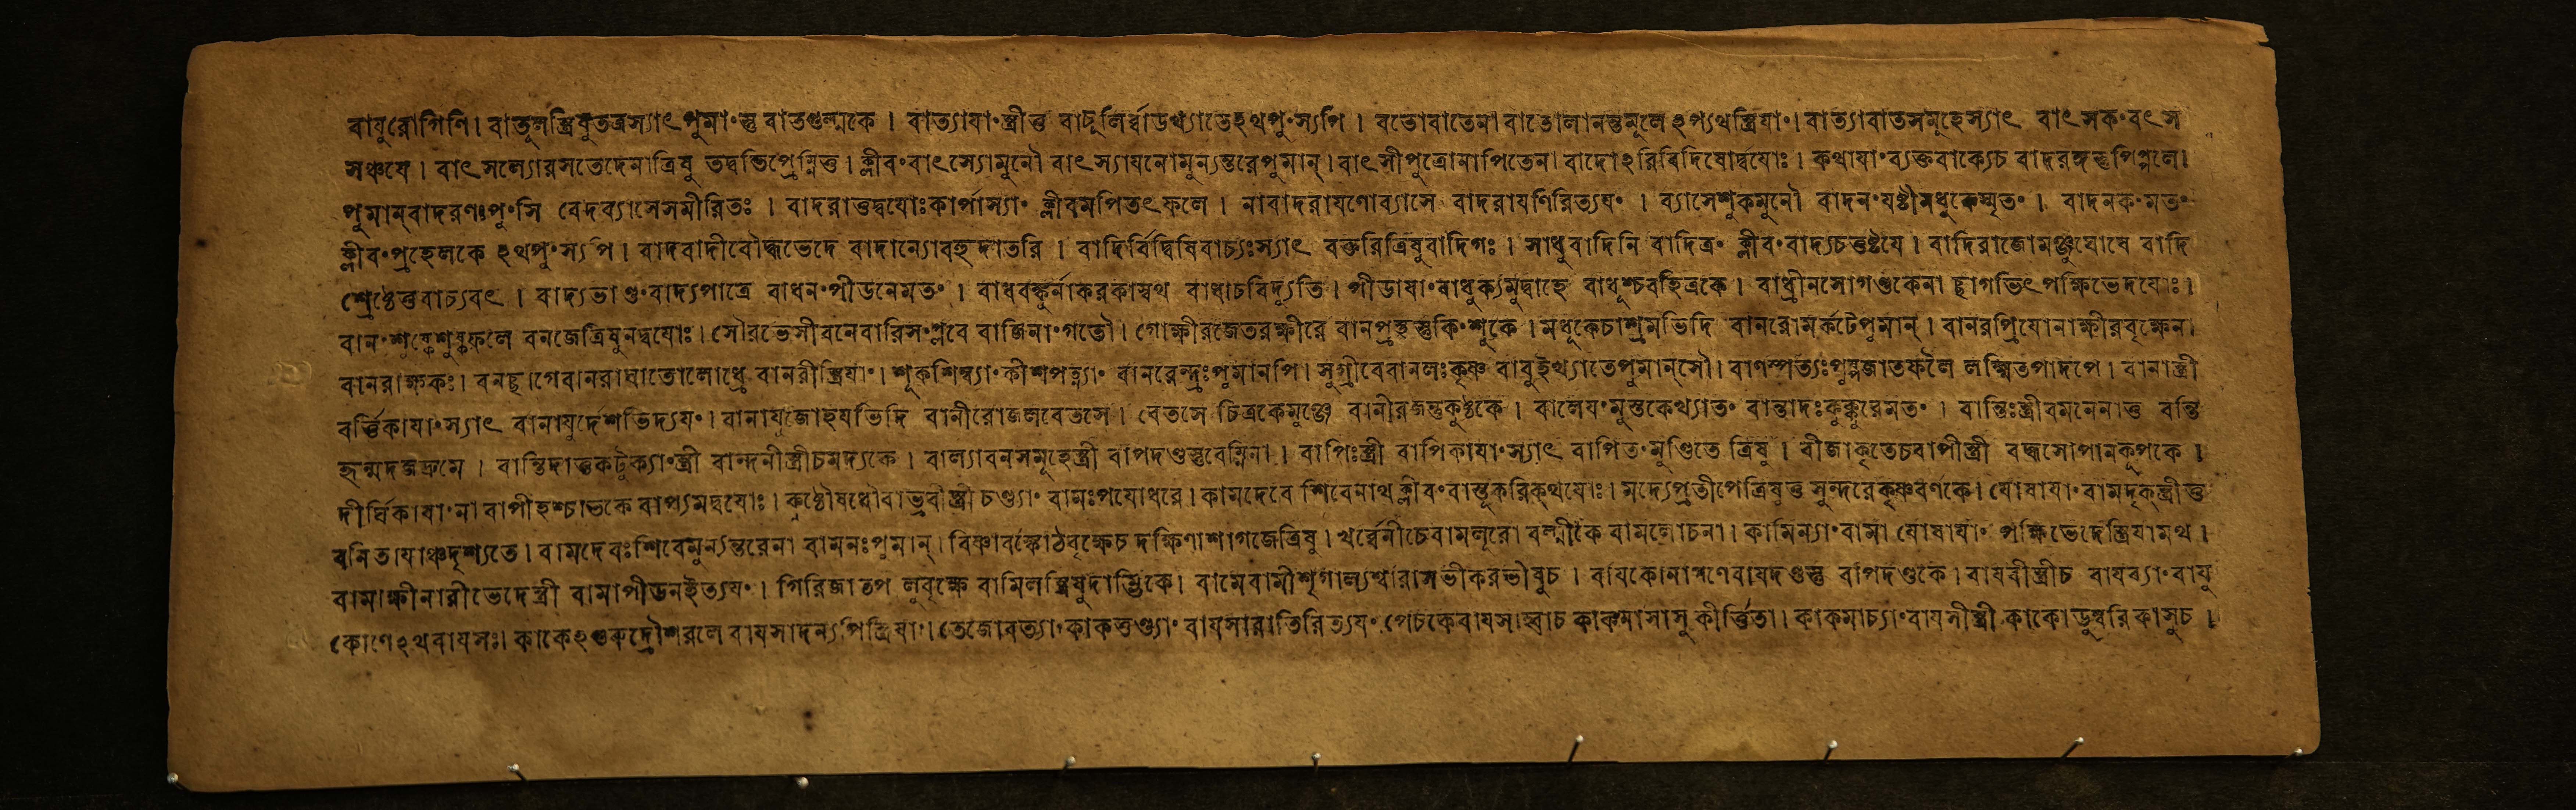 বাযুরোগিণি। বাতুলস্ত্রিষুতত্রস্যাৎ পুমাংস্তু বাতগুল্মকে । বাত্যাযাংস্ত্রীত্তু বাচূলির্ব্বাডখ্যাতেঽথপুংস্যপি । বতোবাতেনা বাতোলানন্তুমূলেঽপ্যথস্ত্রিযাং। বাত্যাবাতসমুহেস্যাৎ বাৎসকংবৎস
সঞ্চযে । বাৎসল্যোরসভেদেনাত্রিষু তদ্বন্তিপ্রেম্নিত্তু । ক্লীবংবাৎস্যোমুনৌ বাৎস্যাযনোমুন্যন্তরেপুমান্ । বাৎসীপুত্রোনাপিতেনা বাদোঽরিবিদিষোর্দ্বযোঃ । কথাযাংব্যক্তবাক্যেচ বাদরঙ্গত্তুপিপ্পলে।
পুমান্‌বাদরণঃপুংসি বেদব্যাসেসমীরিতঃ । বাদরাত্তুদ্বযোঃকার্পাস্যাং ক্লীবমপিতৎফলে । নাবাদরাযণোব্যাসে বাদরাযণিরিত্যযং । ব্যাসেশুকমুনৌ বাদনংযষ্টীমধুকেস্মৃতং । বাদনকংমতং
ক্লীবংপ্রহেলকে ঽথপুংস্যপি । বাদবাদীবৌদ্ধভেদে বাদান্যোবহুদাতরি । বাদির্বিদ্বিষিবাচ্যঃস্যাৎ বক্তরিত্রিষুবাদিগঃ । সাধুবাদিনি বাদিত্রং ক্লীবংবাদ্যচত্তুষ্টযে । বাদিরাজোমঞ্জুঘোষে বাদি
শ্রেষ্ঠেত্তুবাচ্যবৎ । বাদ্যভাণ্ডংবাদ্যপাত্রে বাধনংপীডনেমতং । বাধবঙ্কুর্নাকরকাস্বথ বাধাচবিদ্যুতি । পীডাযাংবাধুক্যমুদ্বাহে বাধূশ্চবহিত্রকে । বাধ্রীনসোগণ্ডকেনা ছাগভিৎপক্ষিভেদযোঃ।
বানংশুষ্কেশুষ্কফলে বনজেত্রিষুনদ্বযোঃ । সৌরভেসীবনেবারিসংপ্লবে বাজিনাংগতৌ । গোক্ষীরজেতরক্ষীরে বানপ্রস্থস্তুকিংশুকে । মধুকেচাশ্রমভিদি বানরোমর্কটেপুমান্ । বানরপ্রিযোনাক্ষীরবৃক্ষেন।
বানরাক্ষকঃ। বনছাগেবানরাঘাতোলোধ্রে বানরীস্ত্রিযাং। শূকশিম্ব্যাংকীশপত্ন্যাং বানরেন্দ্রঃপুমানপি । সুগ্রীবেবানলঃকৃষ্ণ বাবুইখ্যাতেপুমান্‌সৌ । বাণস্পত্যঃপুষ্পজাতফলৈ লক্ষিতপাদপে । বানাস্ত্রী
বর্ত্তিকাযাংস্যাৎ বানাযুর্দেশভিদ্যযং । বানাযুজোহযভিদি বানীরোজলবেতসে । বেতসে চিত্রকেমুঞ্জে বানীরজন্তুকুষ্ঠকে । বালেযংমুস্তকেখ্যাতং বান্তাদঃকুক্কুরেমতং । বান্তিঃস্ত্রীবমনেনাত্তু বন্তি
বান্তিদাত্তুকটুক্যাংস্ত্রী বান্দনীস্ত্রীচমদ্যকে । বাল্যাবনসমূহেস্ত্রী বাপদণ্ডস্তুবেম্নিনা । বাপিঃস্ত্রী বাপিকাযাংস্যাৎ বাপিতংমুণ্ডিতে ত্রিষু । বীজাকৃতেচবাপীস্ত্রী বদ্ধসোপানকূপকে ।
দীর্ঘিকাযাংনা বাপীহশ্চাতকে বাপ্যমদ্বযোঃ । কুষ্ঠৌষধৌবাভ্রবীস্ত্রী চণ্ড্যাং বামঃপযোধরে । কামদেবে শিবেনাথক্লীবংবাস্তুকরিক্‌থযোঃ। মদ্যেপ্রতীপেত্রিষুত্তু সুন্দরেকৃষ্ণবর্ণকে । যোষাযাংবামদৃক্‌স্ত্রীত্তু
বনিতাযাঞ্চদৃশ্যতে । বামদেবঃশিবেমুন্যন্তরেনা বামনঃপুমান্ । বিষ্ণাবঙ্কোঠবৃক্ষেচ দক্ষিণাশাগজেত্রিষু । খর্ব্বেনীচেবামলূরো বল্মীকে বামলোচনা । কামিন্যাংবামা যোষাযাং পক্ষিভেদেস্ত্রিযামথ ।
বামাক্ষীনারীভেদেস্ত্রী বামাপীডনইত্যযং । গিরিজাতপ লুবৃক্ষে বামিলস্ত্রিষুদাম্ভিকে । বামেবামীশৃগাল্যশ্বারাসভীকরভীষুচ । বাযকোনাগণেবাযদণ্ডস্তু বাপদণ্ডকে । বাযবীস্ত্রীচ বাযব্যাংবাযু
কোণেঽথবাযসঃ। কাকেঽগুরুদ্রৌশরলে বাযসাদন্যপিস্ত্রিযাং। তেজোবত্যাংকাকতুণ্ড্যাং বাযসারাতিরিত্যযং পেচকেবাযসাহ্বাচ কাকমাসাসু কীর্ত্তিতা । কাকমাচ্যাংবাযসীস্ত্রী কাকোডুম্বরিকাসুচ ।